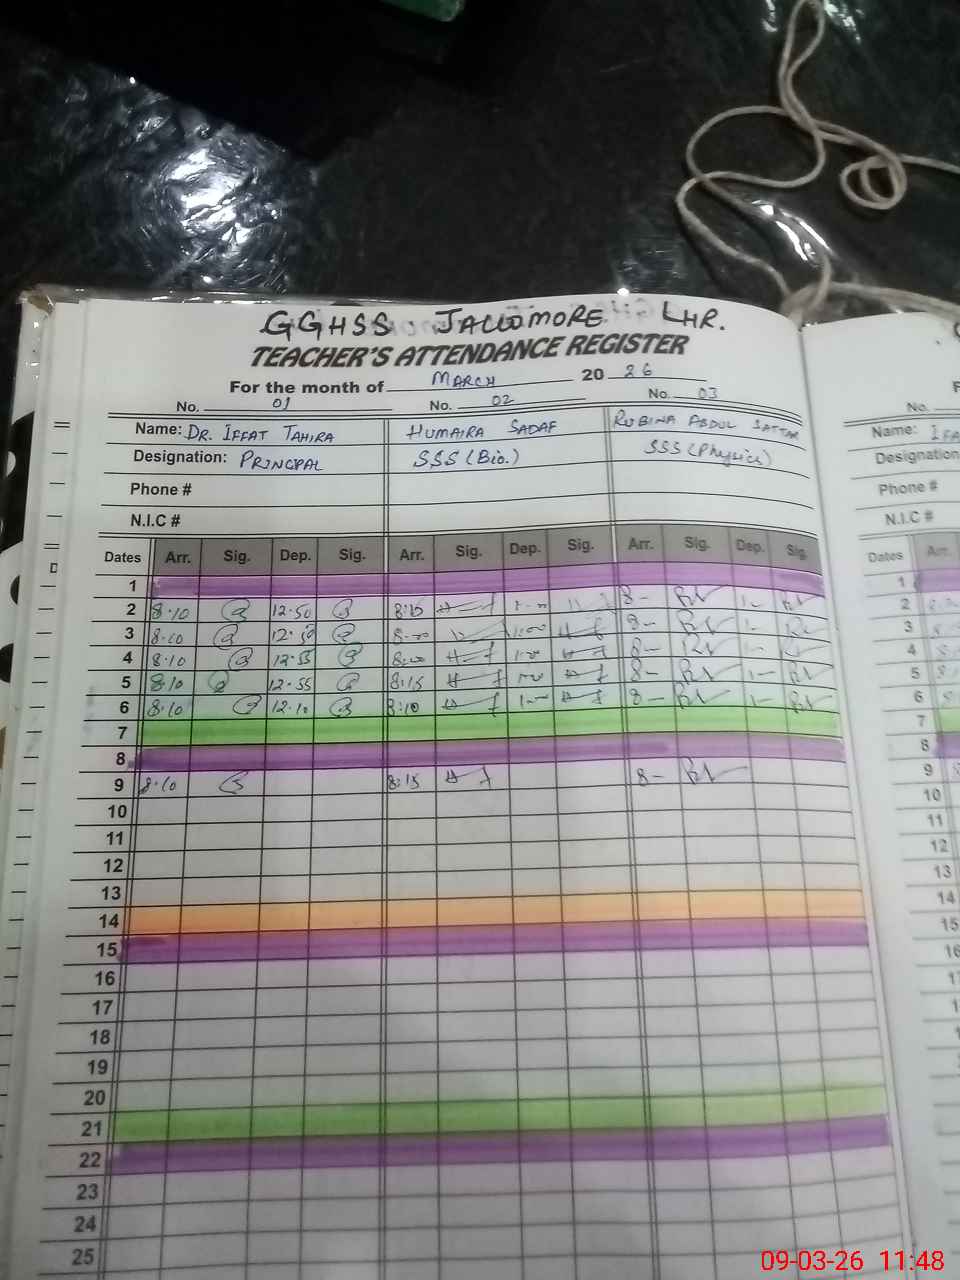 GGHSS JALLOMORE LHR.
TEACHER'S ATTENDANCE REGISTER
For the month of MARCH 20 26
No. 01 No. 02 No. 03
Name: DR. IFFAT TAHIRA HUMAIRA SADAF RUBINA ABDUL SATTAR
Designation: PRINCIPAL SSS (Bio.) SSS (Physics)
Phone #
N.I.C #
Dates Arr. Sig. Dep. Sig. Arr. Sig. Dep. Sig. Arr. Sig. Dep. Sig.
1
2 8.10 12.50 8:15 8- 1-
3 8.10 8-
4 8.10 12.55 8:00 1:00 8- 1-
5 8.10 12.55 8:15 8- 1-
6 8.10 12.10 8:10 8- 1-
7
8
9 8.10 8:15 8-
10
11
12
13
14
15
16
17
18
19
20
21
22
23
24
25
No.
Name:
Designation
Phone #
N.I.C #
Dates Arr.
1
2
3
4
5
6
7
8
9
10
11
12
13
14
15
09-03-26 11:48